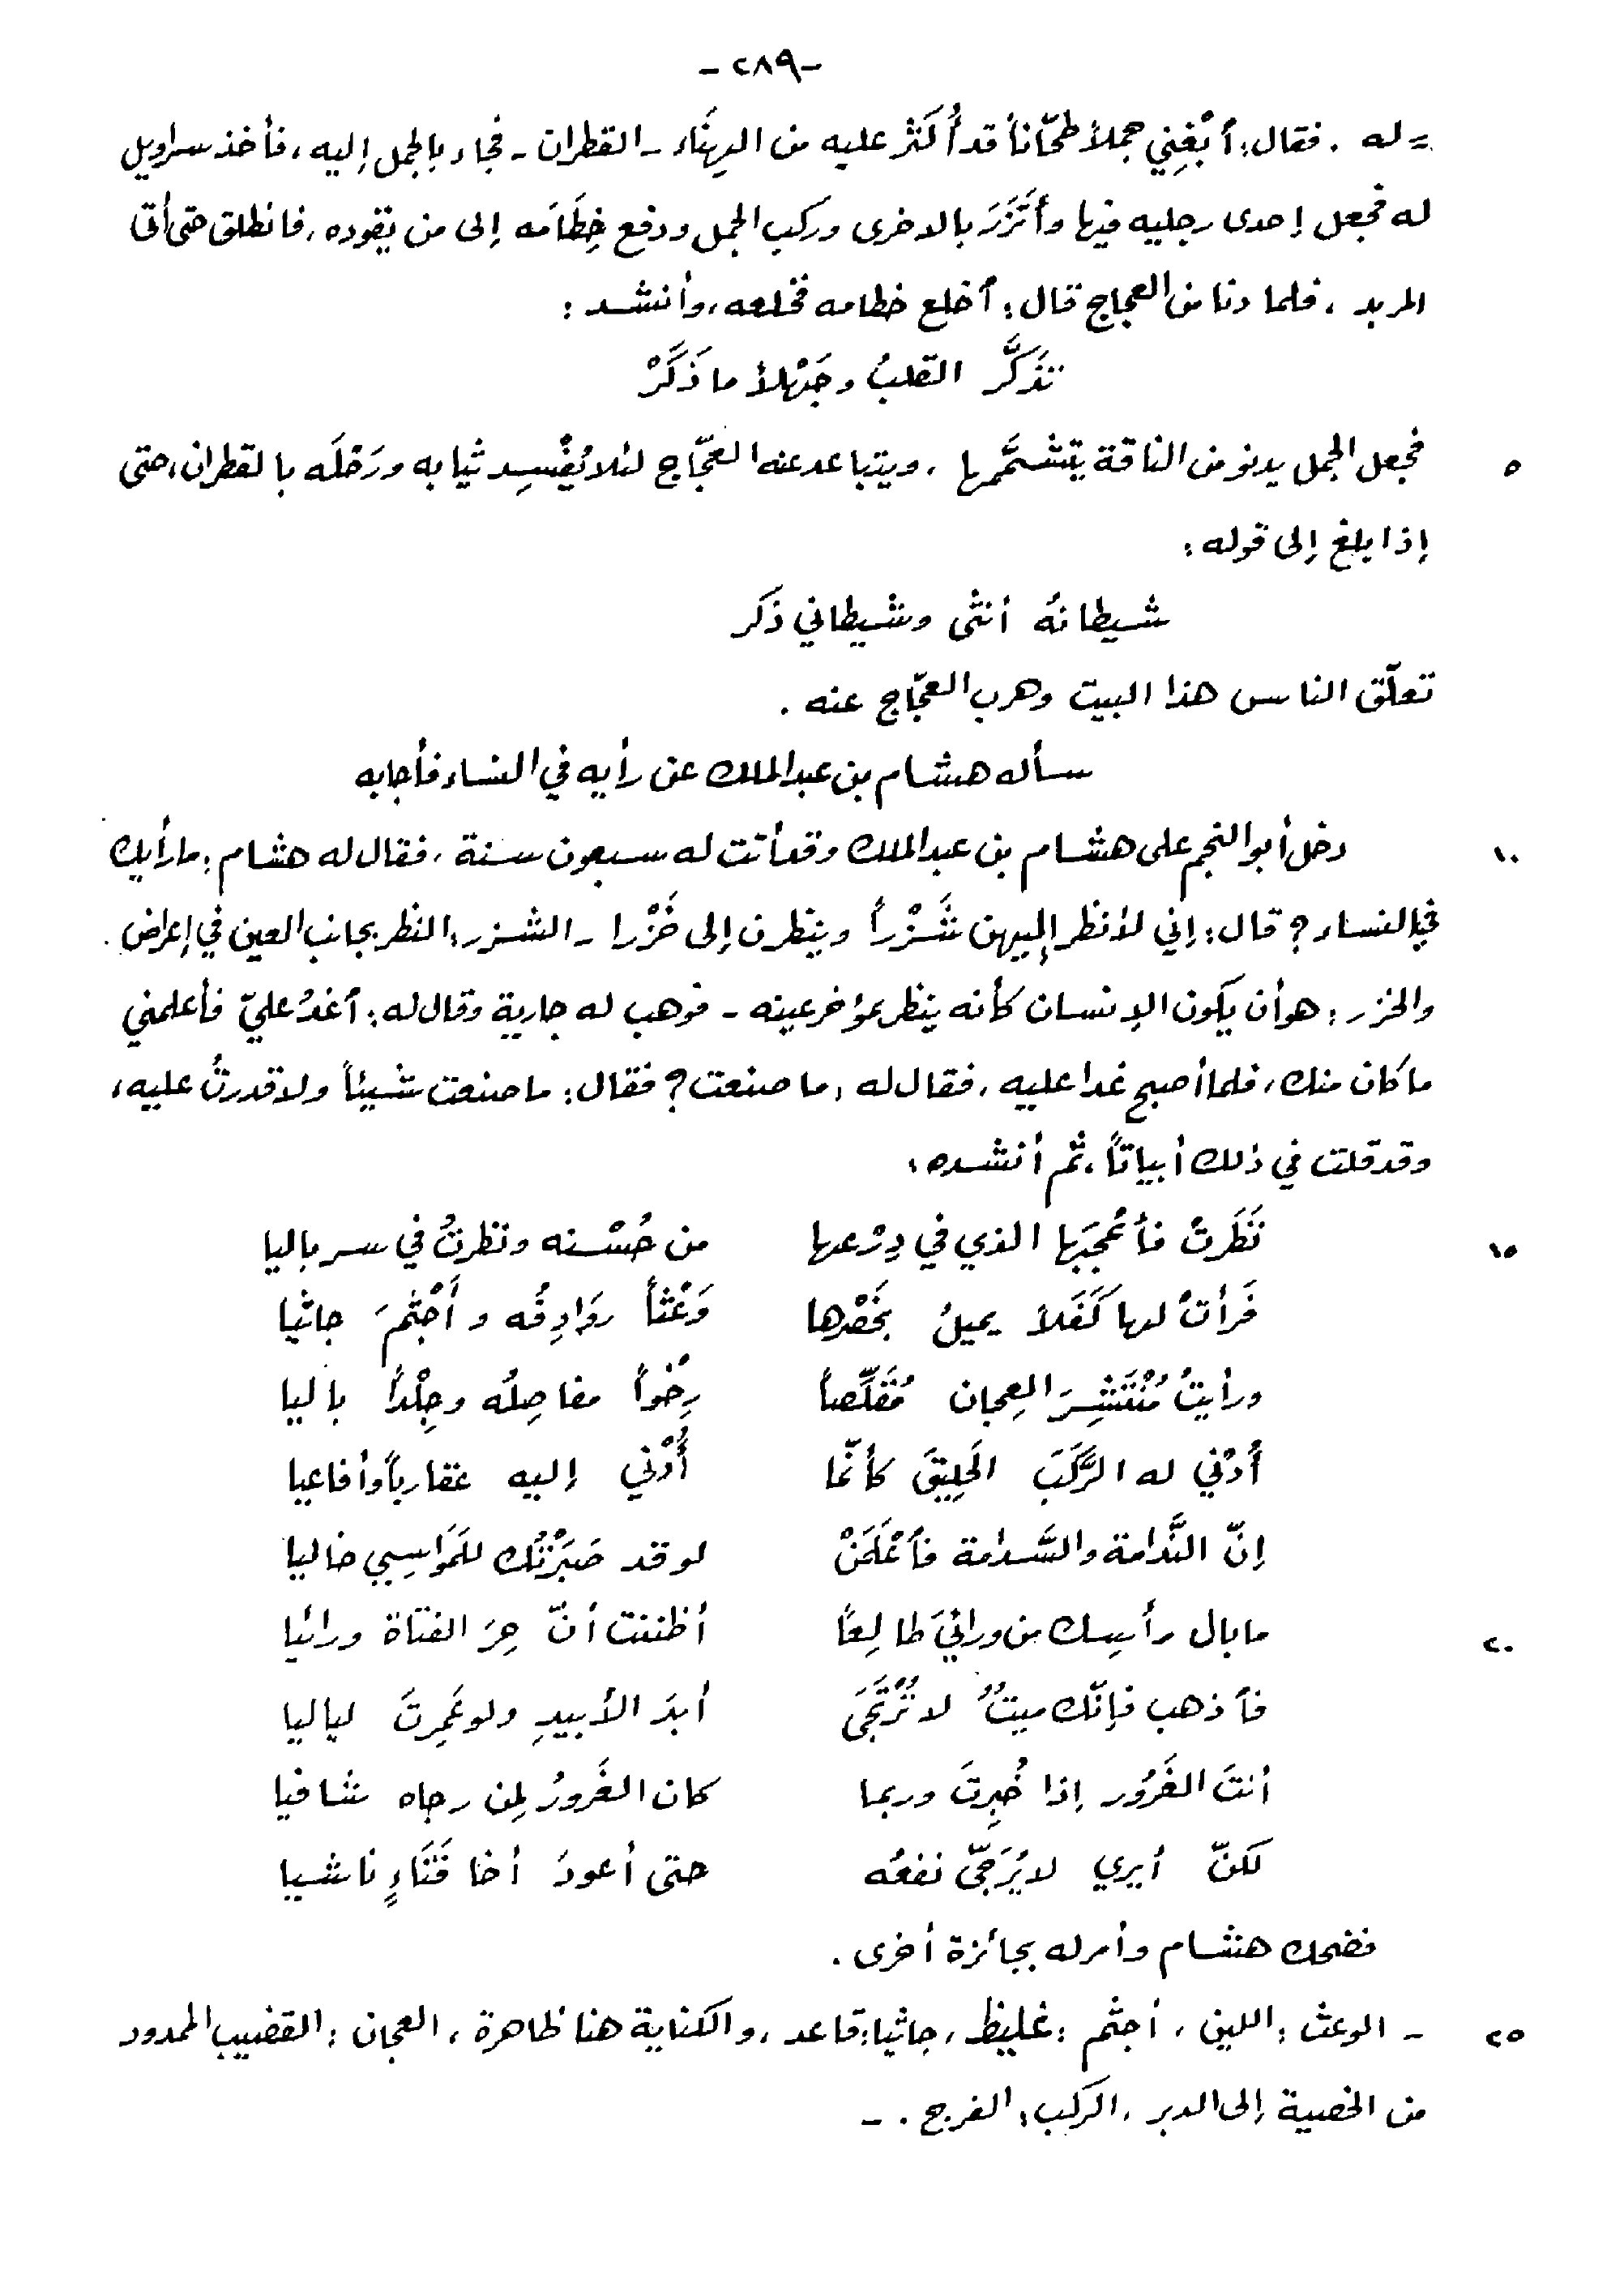 -٢٨٩-
= له . فقال: أبْغِني جملاً طحّاناً قد أُكَثر عليه من الهِنَاء - القطران - فجاء بالجمل إليه، فأخذ سراويل
له فجعل إحدى رجليه فيها وأتَّزَرَ بالأخرى وركب الجمل ودفع خِطَامَه إلى من يقوده، فانطلق حتى أتى
المربد، فلما دنا من العجاج قال: أخلع خطامه فخلعه، وأنشد:
تَذَكَّر القلبُ وجَهْلاً ما ذَكَرْ
٥ فجعل الجمل يدنو من الناقة يتشمَّمها، ويتباعد عنه العجّاج لئلا يُفْسِد ثيابه ورَحْلَه بالقطران، حتى
إذا بلغ إلى قوله:
شيطانهُ أنثى وشيطاني ذَكَر
تعلّق الناس هذا البيت وهرب العجّاج عنه .
سأله هشام بن عبد الملك عن رأيه في النساء فأجابه
١٠ دخل أبو النجم على هشام بن عبد الملك وقد أتت له سبعون سنة، فقال له هشام: ما رأيك
في النساء؟ قال: إني لأنظر إليهن شَزْراً وينظرن إلى خَزْرا - الشزر: النظر بجانب العين في إعراض.
والخزر: هو أن يكون الإنسان كأنه ينظر بمؤخر عينه - فوهب له جارية وقال له: أغدُ عليّ فأعلمني
ما كان منك، فلما أصبح غدا عليه، فقال له: ما صنعت؟ فقال: ما صنعت شيئاً ولا قدرتُ عليه،
وقد قلت في ذلك أبياتاً، ثم أنشده:
١٥ نَظَرتْ فأعْجَبَها الذي في دِرْعها من حُسْنه ونظرتُ في سرباليا
فَرأتْ لها كَفَلاً يميلُ بخَصْرها وَعْثاً روَادِفُه و أَجْثمَ جاثيا
ورأيتُ مُنْتَشِرَ العِجان مُقَلَّصاً رِخْواً مفاصِلُه وجِلْداً باليا
أُدْني له الرَّكَبَ الحَلِيقَ كأنّما أُدْني إليه عقارباً وأفاعيا
إنّ النَّدامة والسَّدامة فأعْلَمَنْ لو قد صَبَرْتُك للمَواسِي خاليا
٢٠ ما بال رأسِك من ورائيَ طالِعاً أظننت أنّ حِرَ الفتاة ورائيا
فأذهب فإنّك ميتٌ لا تُرْتَجَى أبدَ الأبيدِ ولو عَمِرتَ لياليا
أنتَ الغَرُور إذا خُبِرتَ وربما كان الغَرورُ لمن رجاه شافيا
لكنّ أيري لا يُرَجّى نفعُه حتى أعودَ أخا فَتَاءٍ ناشيا
فضحك هشام وأمر له بجائزة أخرى .
٢٥ - الوعث: اللين، أجثم: غليظ، جاثيا: قاعد، والكناية هنا ظاهرة، العجان: القضيب الممدود
من الخصية إلى الدبر، الركب: الفرج . -